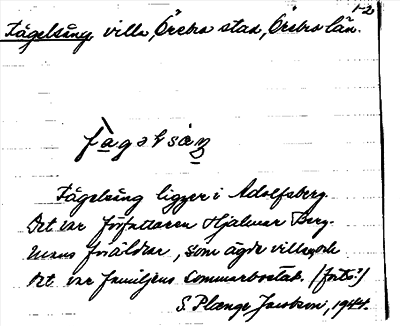 1-2
Fågelsång villa, Örebro stad, Örebro län.
Fågelsång ligger i Adolfsberg.
Det var författaren Hjalmar Berg-
mans föräldrar, som ägde villan och
det var familjens sommarbostad. (forts!)
S. Plænge Jacobson, 1944.